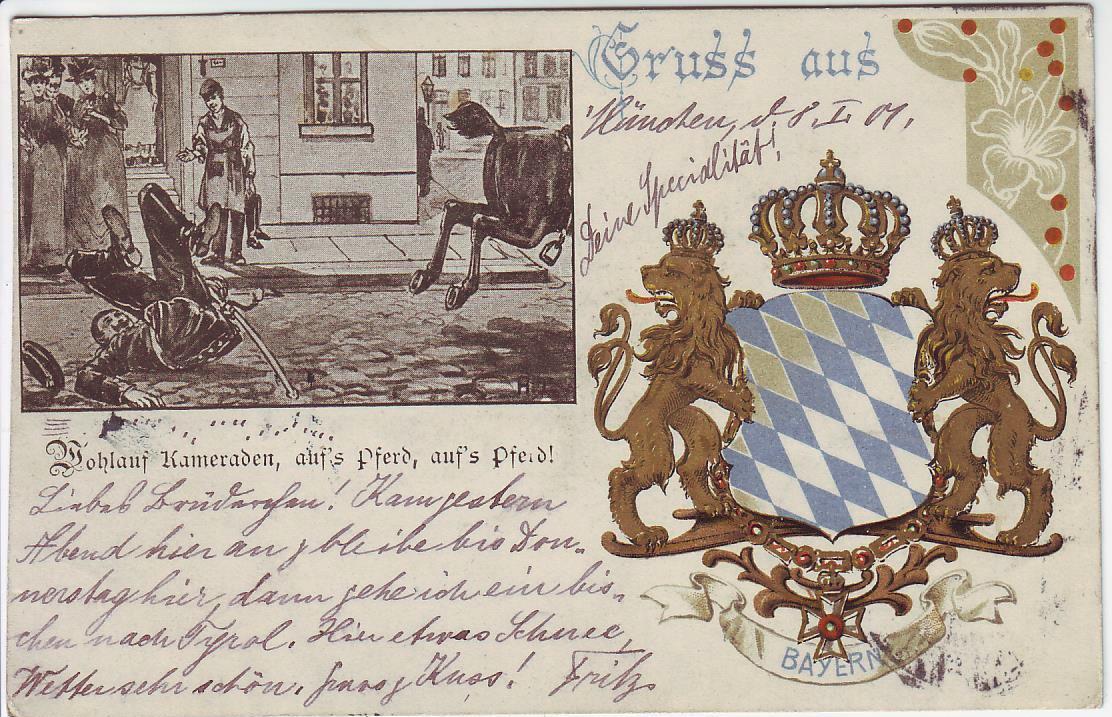 Gruss aus
München, d 8. I 01.
Deine Specialität!
Wohlauf Kameraden, auf's Pferd, auf's Pferd!
Liebes Brüderchen! Kam gestern
Abend hier an, bleibe bis Don-
nerstag hier, dann gehe ich ein bis-
chen nach Tyrol. Hier etwas Schnee,
Wetter sehr schön. Kuss! Fritz
BAYERN